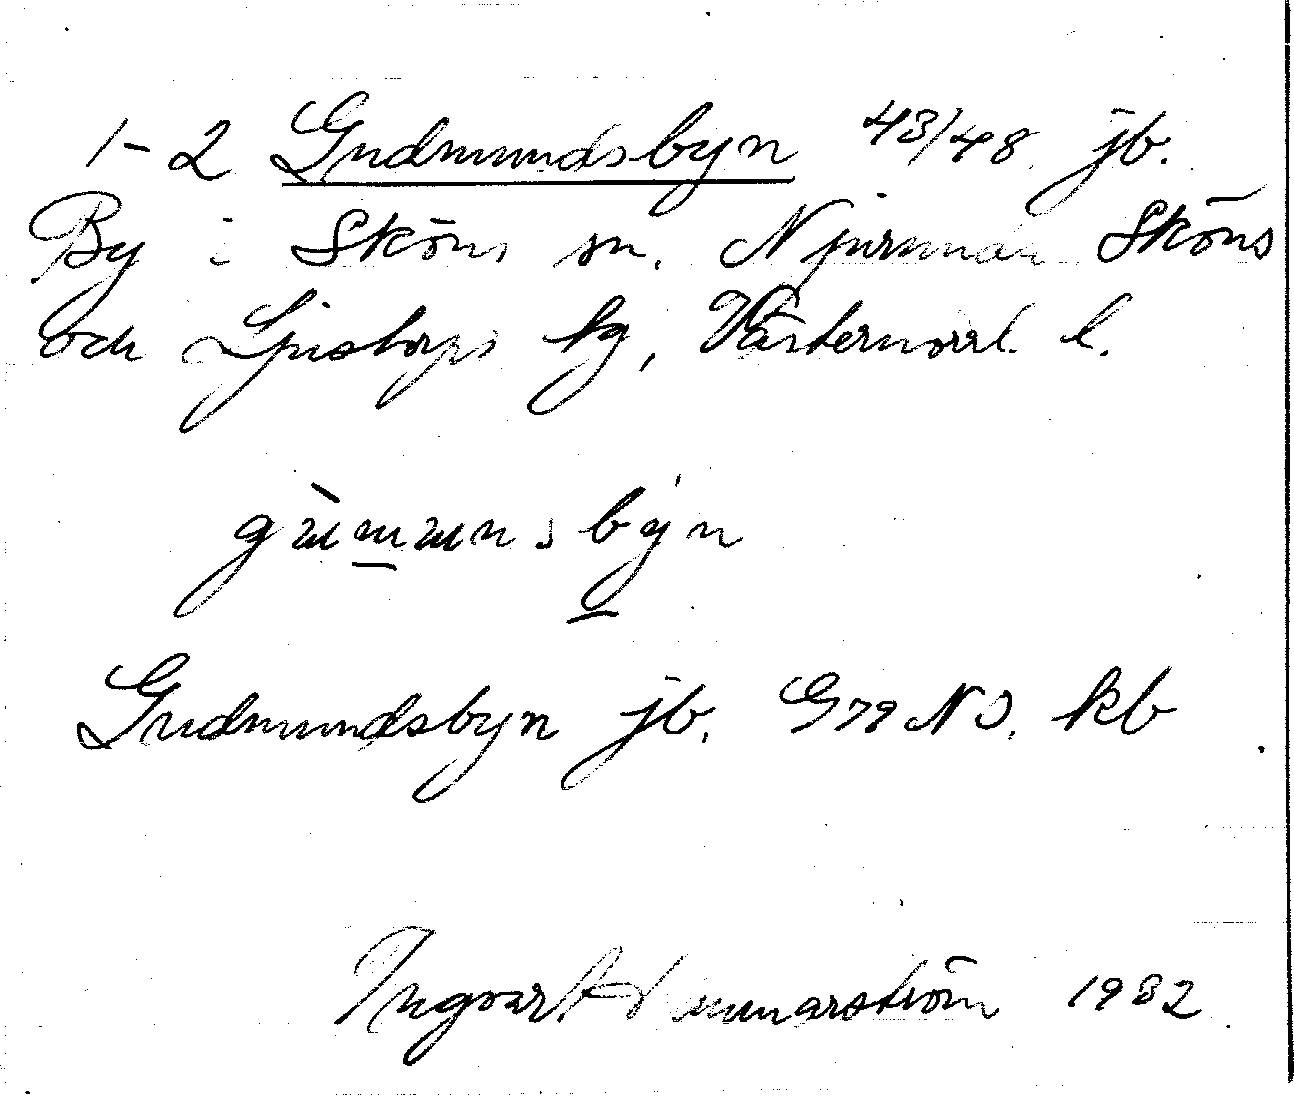 1-2 Gudmundsbyn 43/48 jb.
By i Sköns sn. Njurunda Sköns
och Ljustorps tg, Västernorrl. l.
gɯ̀mɯnsbyn
Gudmundsbyn jb. G79NO. kb
Ingvar Hammarström 1932